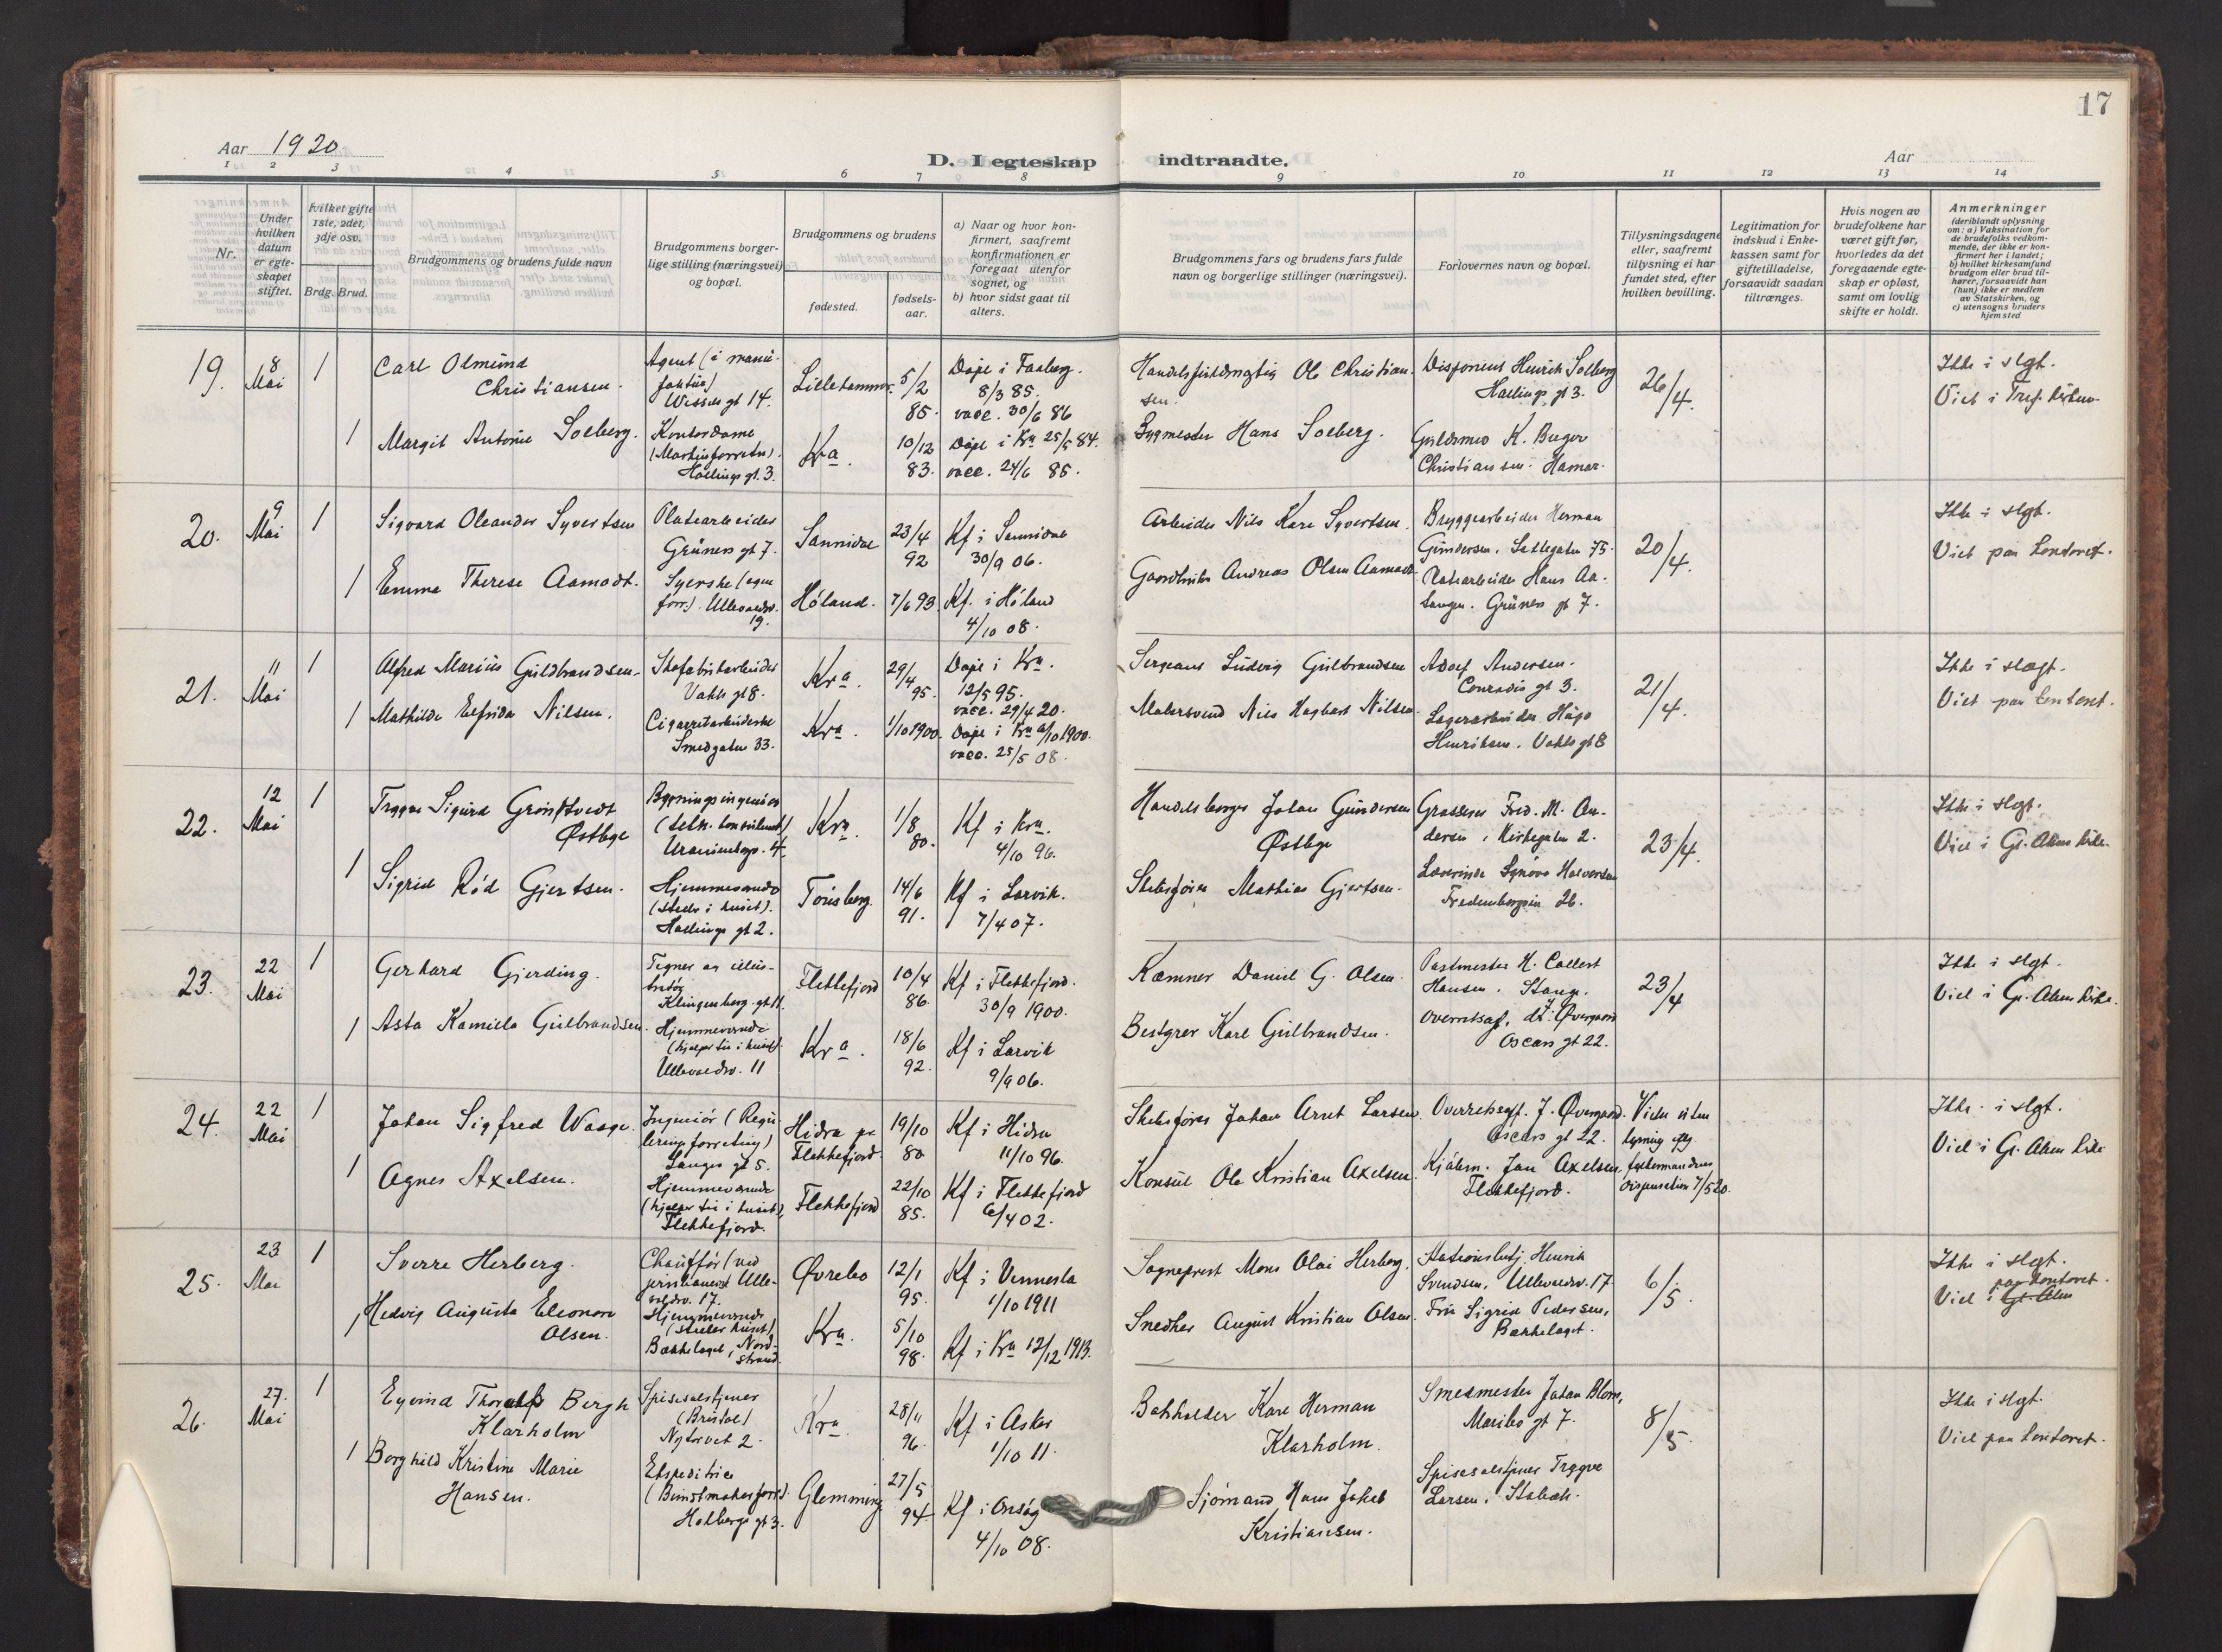 17
Aar 1920.
D. I egteskap indtraadte.
Aar
1 2 3 4 5 6 7 8 9 10 11 12 13 14
Nr.
Under hvilken datum er egteskapet stiftet.
hvilket gifte 1ste, 2det, 3dje osv.
Brdg. Brud.
Brudgommens og brudens fulde navn
Brudgommens borgerlige stilling (næringsvei) og bopæl.
Brudgommens og brudens
fødested.
fødselsaar.
a) Naar og hvor konfirmert, saafremt konfirmationen er foregaat utenfor sognet, og
b) hvor sidst gaat til alters.
Brudgommens fars og brudens fars fulde navn og borgerlige stillinger (næringsvei).
Forlovernes navn og bopæl.
Tillysningsdagene eller, saafremt tillysning ei har fundet sted, efter hvilken bevilling.
Legitimation for indskud i Enkekassen samt for giftetilladelse, forsaavidt saadan tiltrænges.
Hvis nogen av brudefolkene har været gift før, hvorledes da det foregaaende egteskap er opløst, samt om lovlig skifte er holdt.
Anmerkninger
(deriblandt oplysning om: a) Vaksination for de brudefolks vedkommende, der ikke er konfirmert her i landet;
b) hvilket kirkesamfund brudgom eller brud tilhører, forsaavidt han (hun) ikke er medlem av Statskirken, og
c) utensogns bruders hjemsted
19. 8 Mai 1
Carl Olmund Christiansen.
Agent (i manufaktur) Wessels gt 14.
Lillehammer. 5/2 85.
Døpt i Faaberg. 8/3 85. vacc. 30/6 86
Handelsfuldmægtig Ole Christiansen.
Disponent Henrik Solberg Hallings gt 3.
26/4.
Ikke i slegt.
Viet i Tref. kirken
1 Margit Antonie Solberg.
Kontordame Hallings gt. 3.
Kra. 10/12 83.
Døpt i Kra 25/5 84. vacc. 24/6 85.
Bygmester Hans Solberg.
Guldsmed K. Birger Christiansen. Hamar.
20. 9 Mai 1
Sigvard Oleander Syvertsen
Platearbeider Grüners gt 7.
Sannidal 23/4 92
Kf i Sannidal 30/9 06.
Arbeider Nils Kare Syvertsen.
Bryggearbeider Herman Gundersen.
20/4.
Ikke i slegt.
Viet paa kontoret.
1 Emma Therese Aamodt.
Syerske (egen forr.). Ullevaldsv. 19.
Høland. 7/6 93.
Kf. i Høland 4/10 08.
Gaardbruker Andreas Olsen Aamodt
Platearbeider Hans Aasangen. Grüners gt 7.
21. 11 Mai 1
Alfred Marius Guldbrandsen.
Skofabrikarbeider Vahls gt 8.
Kra. 29/4 95.
Døpt i Kra. 12/5 95. vacc. 29/4 20.
Sergeant Ludvig Gulbrandsen
Adolf Andersen. Conradis gt 3.
21/4.
Ikke i slegt.
Viet paa kontoret.
1 Mathilde Elfrida Nilsen.
Cigaretarbeiderske Smedgaten 33.
Kra. 1/10 1900.
Døpt i Kra /10 1900. vacc. 25/5 08.
Malersvend Nils Hagbart Nilsen
Lagerarbeider Hugo Henriksen. Vahls gt 8
22. 12 Mai 1
Trygve Sigurd Grondtvedt Østbye
Bygningsingeniør (tekn. konsulent) Uranienborgv. 4.
Kra. 1/8 80.
Kf i Kra. 4/10 96.
Handelsborger Johan Gundersen Østbye
Grosserer Fred. M. Andersen, Kirkegaten 2.
23/4.
Ikke i slegt.
Viet i Gl. Akers kirke.
1 Sigrid Rød Gjertsen.
Hjemmeværende (steller i huset). Hallings gt 2.
Tønsberg. 14/6 91.
Kf i Larvik. 7/4 07.
Skibsfører Mathias Gjertsen.
Lærerinde Synøve Halvorsen Fredensborgvn 26.
23. 22 Mai 1
Gerhard Gjerding.
Tegner og illustratør Klingenberg. gt 11
Flekkefjord 10/4 86.
Kf i Flekkefjord. 30/9 1900.
Kæmner Daniel G. Olsen.
Postmester H. Collert Hansen. Stange.
23/4
Ikke i slegt.
Viet i Gl. Akers kirke.
1 Asta Kamilla Gulbrandsen.
Hjemmeværende (hjelper til i huset). Ullevaldsv. 11
Kra. 18/6 92.
Kf i Larvik 9/9 06.
Bestyrer Karl Gulbrandsen.
Overretssaf. J. Øvergaard Oscars gt 22.
24. 22 Mai 1
Johan Sigfred Waage.
Ingeniør (Reguleringsforretning) Langes gt 5.
Hidra pr Flekkefjord. 19/10 80
Kf i Hidra 11/10 96.
Skibsfører Johan Arnt Larsen
Overretssaf. J. Øvergaard. Oscars gt 22.
Viden uten lysning iflg. fylkesmandens dispensation 7/5 20.
Ikke i slegt.
Viet i Gl. Akers kirke
1 Agnes Axelsen.
Hjemmeværende (hjelper til i huset), Flekkefjord.
Flekkefjord 22/10 85.
Kf i Flekkefjord 6/4 02.
Konsul Ole Kristian Axelsen.
Kjøbm. Jan Axelsen, Flekkefjord.
25. 23 Mai 1
Sverre Herberg.
Chauffør Ullevaldsv. 17.
Øvrebo 12/1 95.
Kf i Vennesla 1/10 1911
Sogneprest Mons Olai Herberg.
Stationsbetj. Henrik Svendsen, Ullevaldsv. 17
6/5.
Ikke i slegt.
Viet i Gl. Aker paa kontoret.
1 Hedvig Augusta Eleonore Olsen.
Hjemmeværende (steller huset) Bækkelaget, Nordstrand.
Kra. 5/10 98.
Kf i Kra 12/12 1913.
Snedker August Kristian Olsen.
Fru Sigrid Pedersen, Bækkelaget.
26. 27. Mai 1
Eyvind Thoralf Bergh Klarholm
Spisesalstjener (Bristol) Nytorvet 2.
Kra. 28/11 96.
Kf i Asker 1/10 11.
Bokholder Karl Herman Klarholm.
Smedmester Johan Blom, Maribo gt 7.
8/5.
Ikke i slegt.
Viet paa kontoret.
1 Borghild Kristine Marie Hansen.
Ekspeditrice (Buntmakerforr.). Holbergs gt 3.
Glemminge 27/5 94.
Kf i Onsøy 4/10 08.
Sjømand Hans Jakob Kristiansen.
Spisesalstjener Trygve Larsen. Stabæk.